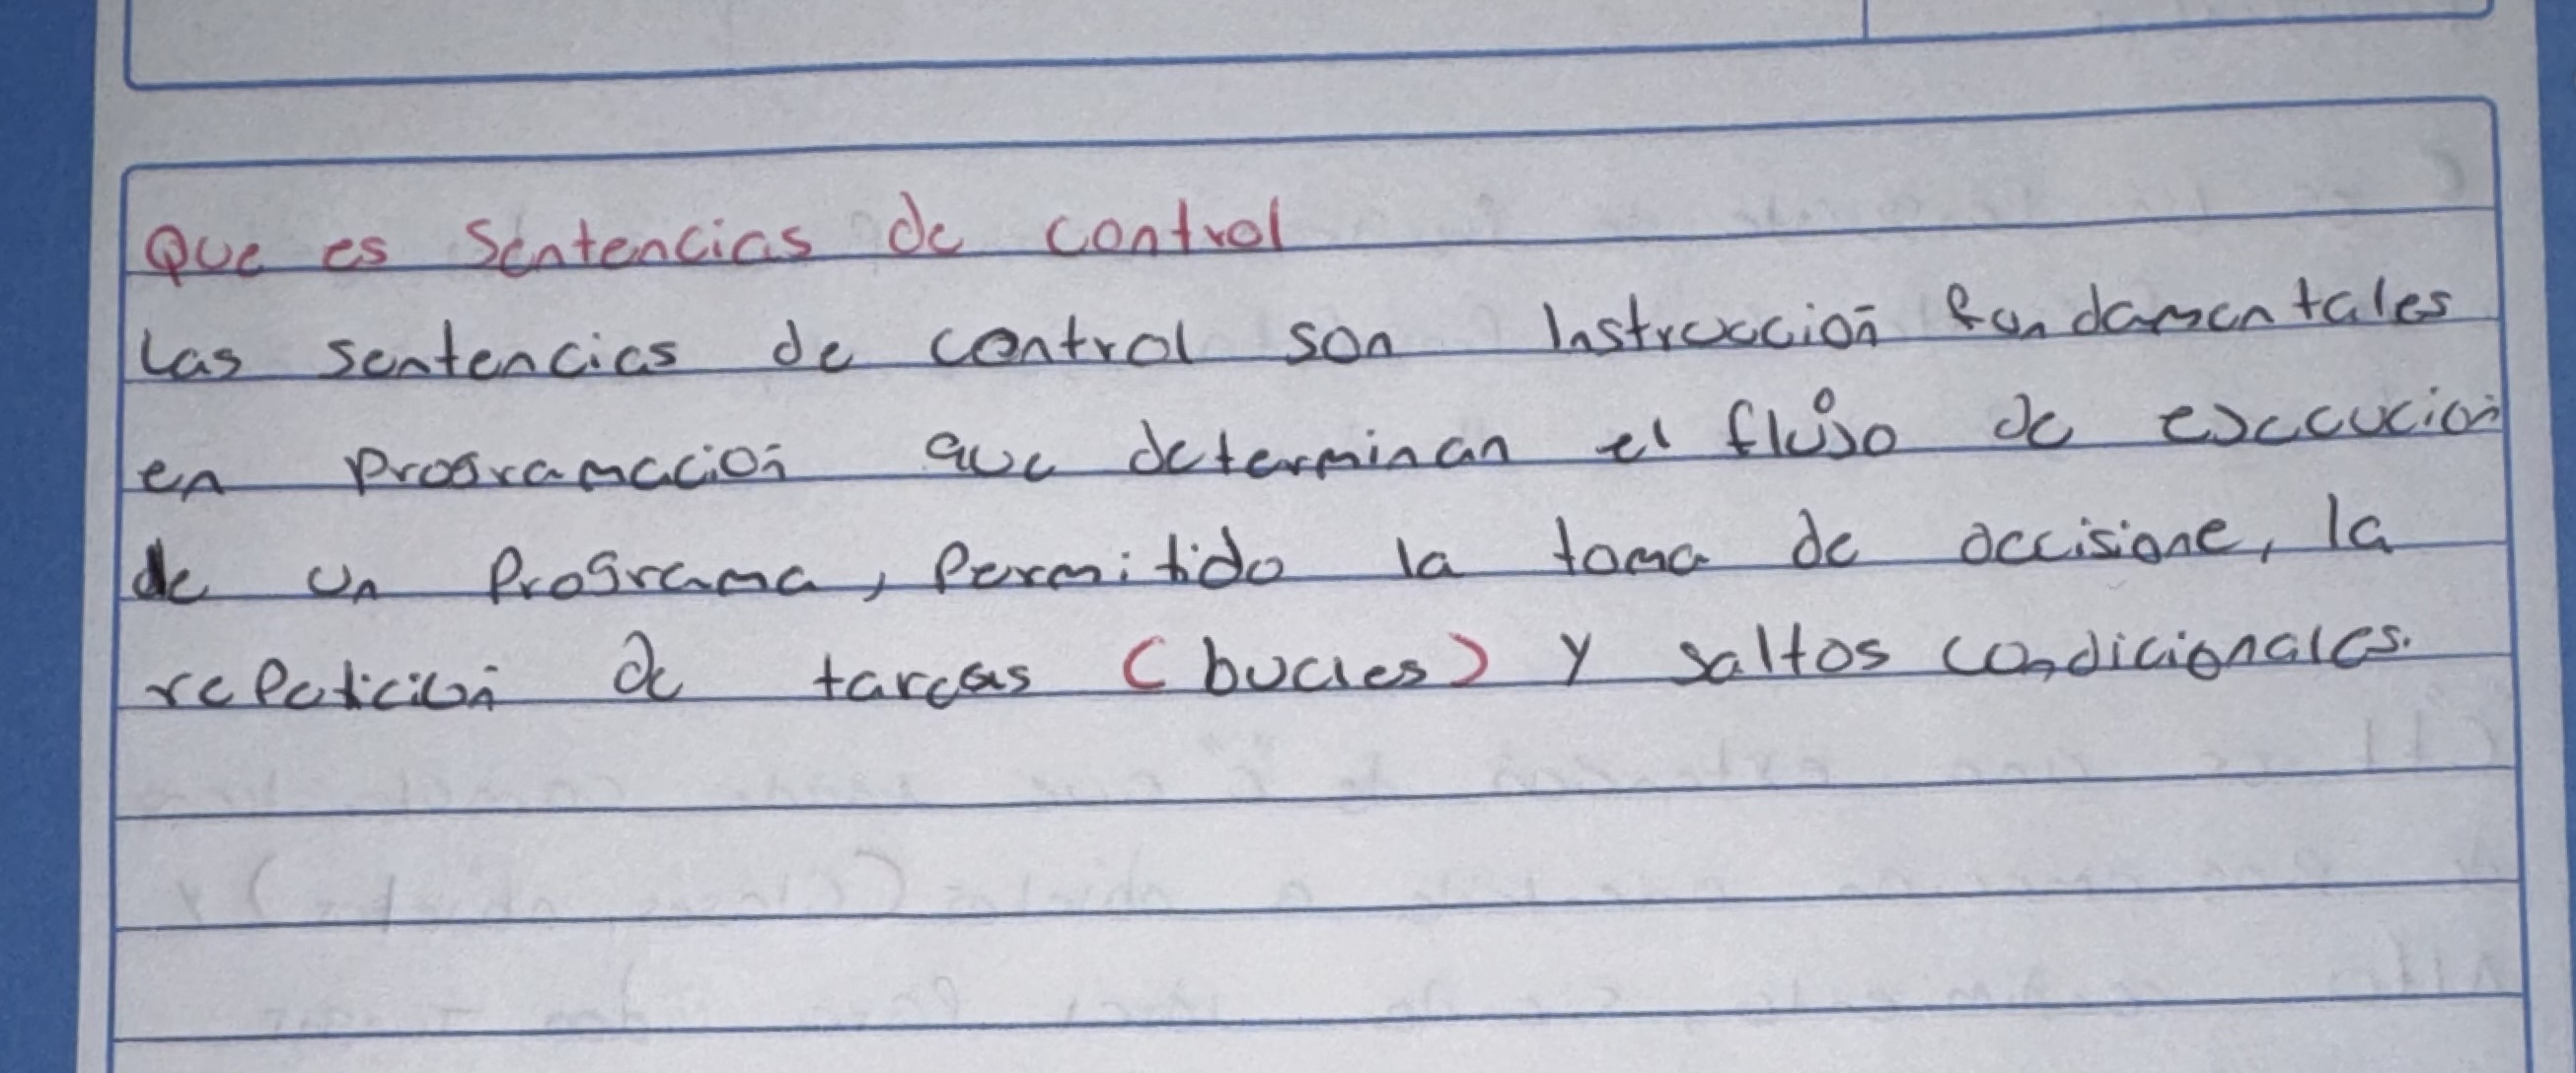 Que es Sentencias de control
Las sentencias de control son Instrucción fundamentales
en programación que determinan el flujo de ejecución
de un Programa, Permitido la toma de decisione, la
rePetición de tareas (bucles) y saltos condicionales.